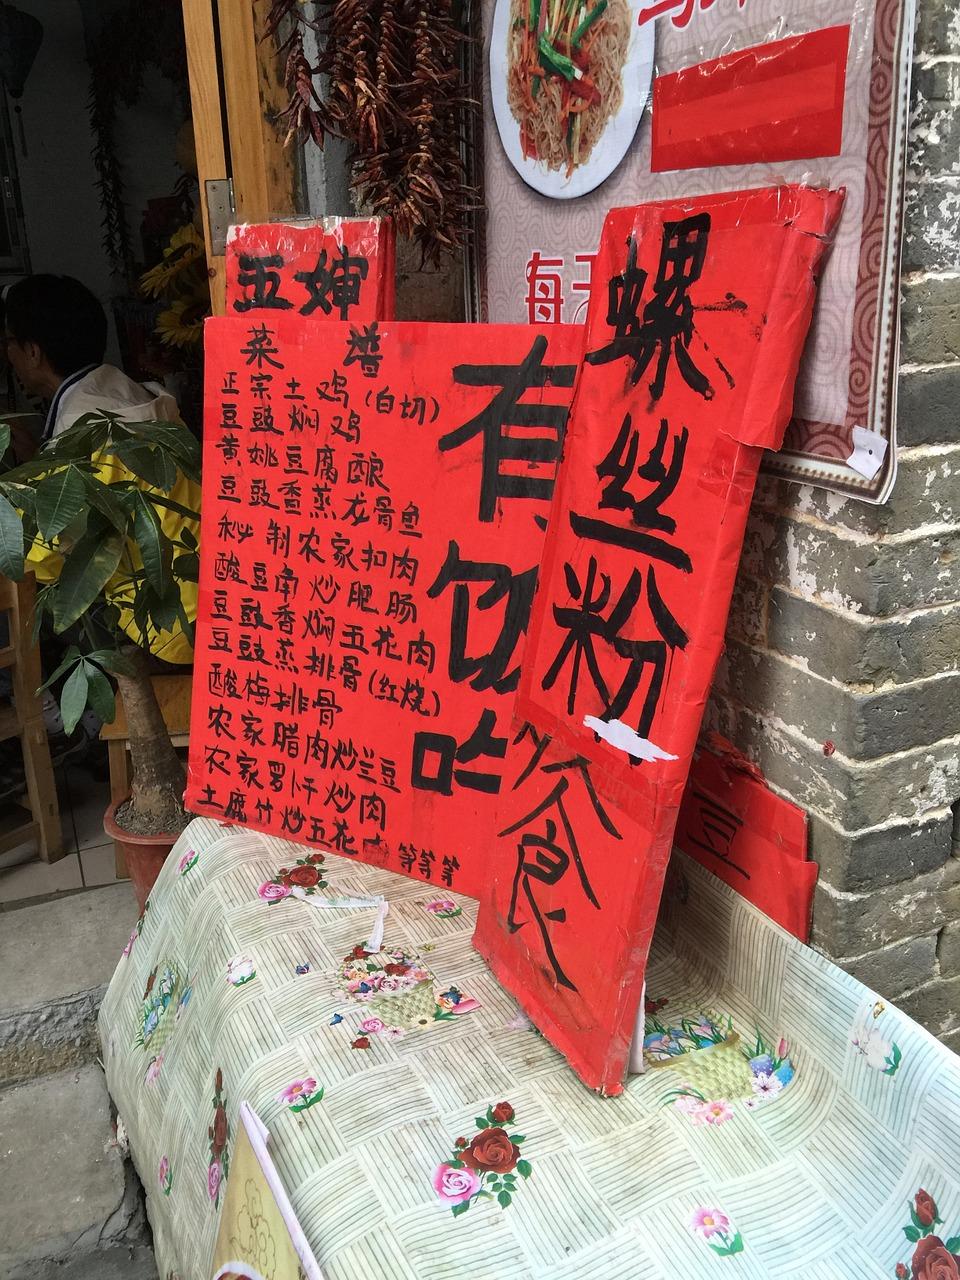 五婶
菜谱
正宗土鸡(白切)
豆豉焖鸡
黄姚豆腐酿
豆豉香蒸龙骨鱼
秘制农家扣肉
酸豆角炒肥肠
豆豉香焖五花肉
豆豉蒸排骨(红烧)
酸梅排骨
农家腊肉炒兰豆
农家罗卜干炒肉
土腐竹炒五花肉等等等
有
饭
吃
螺丝粉
食
每天
豆